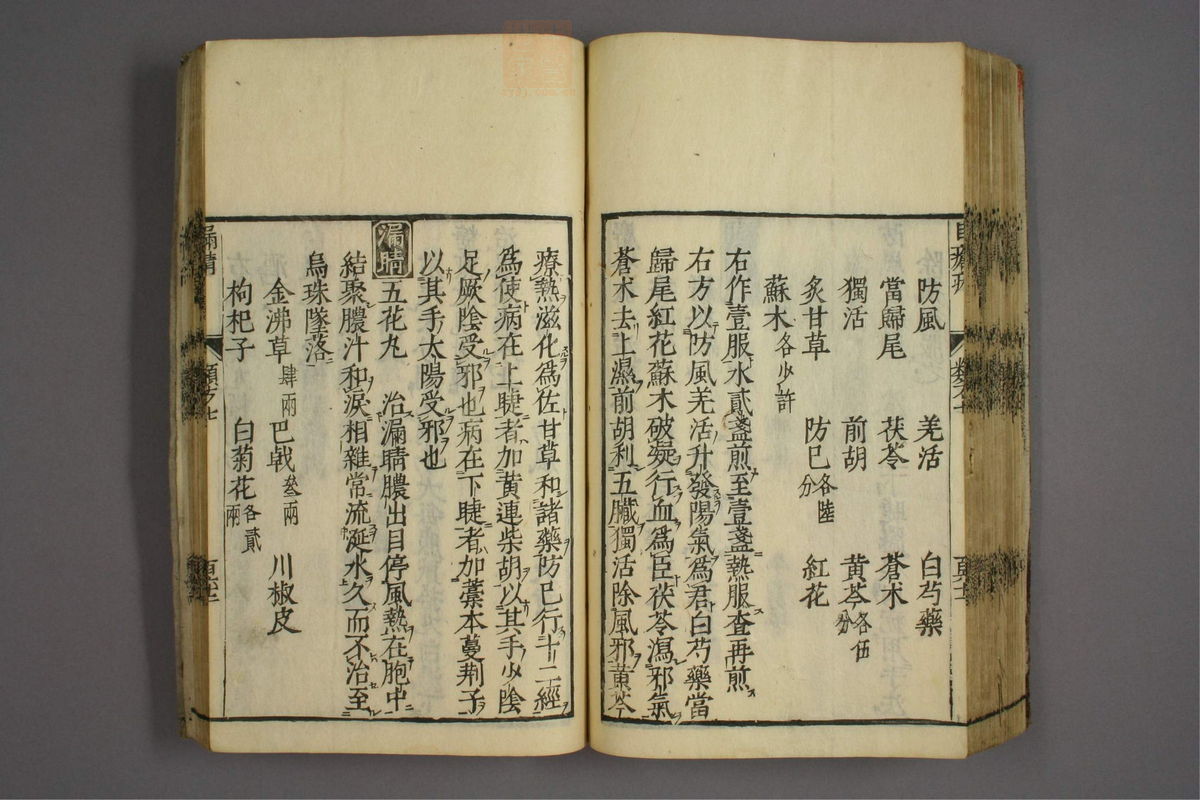 防風 羌活 白芍藥
當歸尾 茯苓 蒼朮
獨活 前胡 黄芩各伍分
炙甘草 防已各陸分 紅花
蘇木各少許
右作壹服水貳盞煎至壹盞熱服査再煎
右方以防風羌活升發陽氣爲君白芍藥當
歸尾紅花蘇木破凝行血爲臣茯苓瀉邪氣
蒼朮去上濕前胡利五臟獨活除風邪黄芩
療熱滋化爲佐甘草和諸藥防已行十二經
爲使病在上睫者加黄連柴胡以其手少陰
足厥陰受邪也病在下睫者加藁本蔓荆子
以其手太陽受邪也
漏睛 五花丸 治漏睛膿出目停風熱在胞中
結聚膿汁和淚相雜常流涎水久而不治至
烏珠墜落
金沸草肆兩 巴戟叄兩 川椒皮
枸杞子 白菊花各貳兩